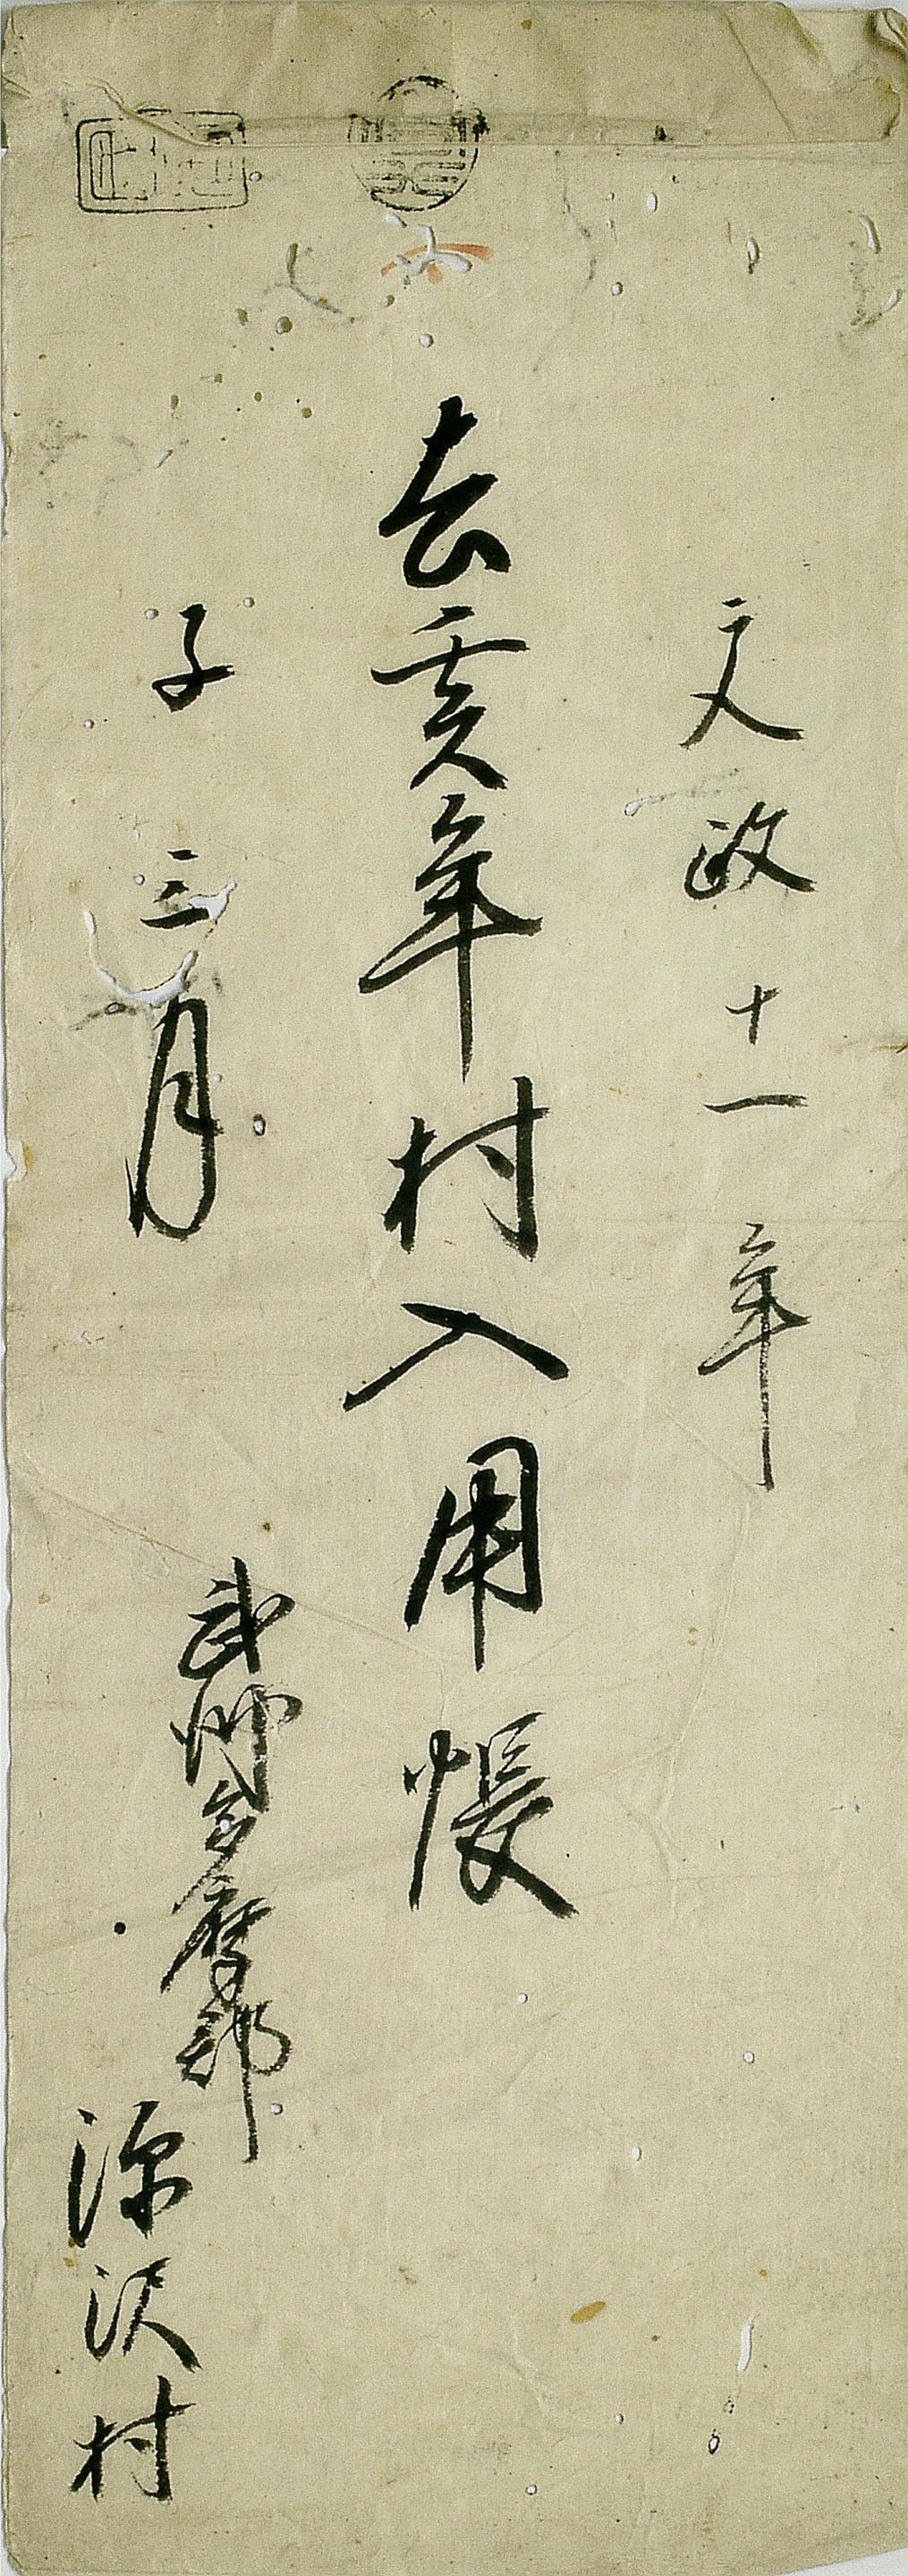 文政十一年
去亥年村入用帳
子三月
武州多摩郡
深沢村